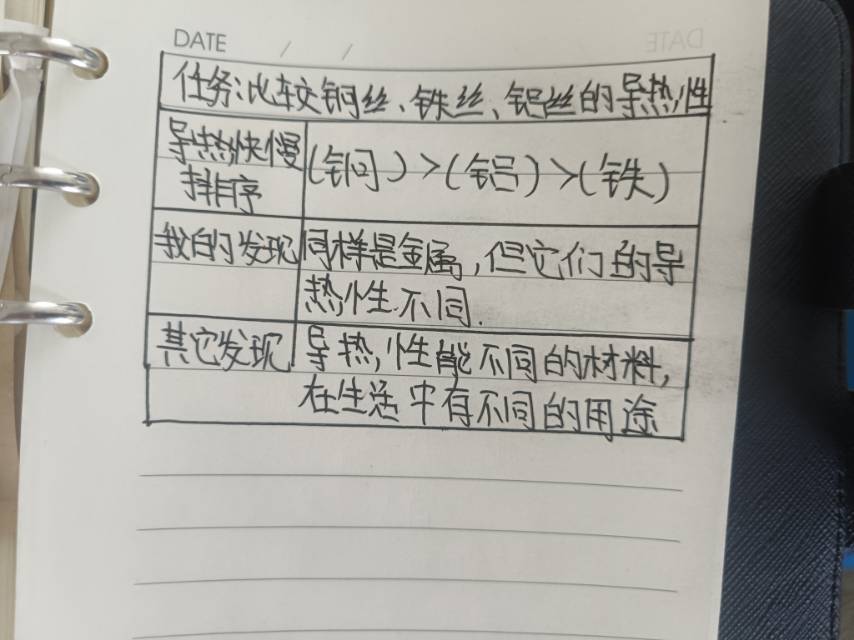 DATE / /
任务:比较铜丝、铁丝、铝丝的导热性
导热快慢
排序
(铜)>(铝)>(铁)
我的发现
同样是金属,但它们的导
热性不同.
其它发现
导热,性能不同的材料,
在生活中有不同的用途